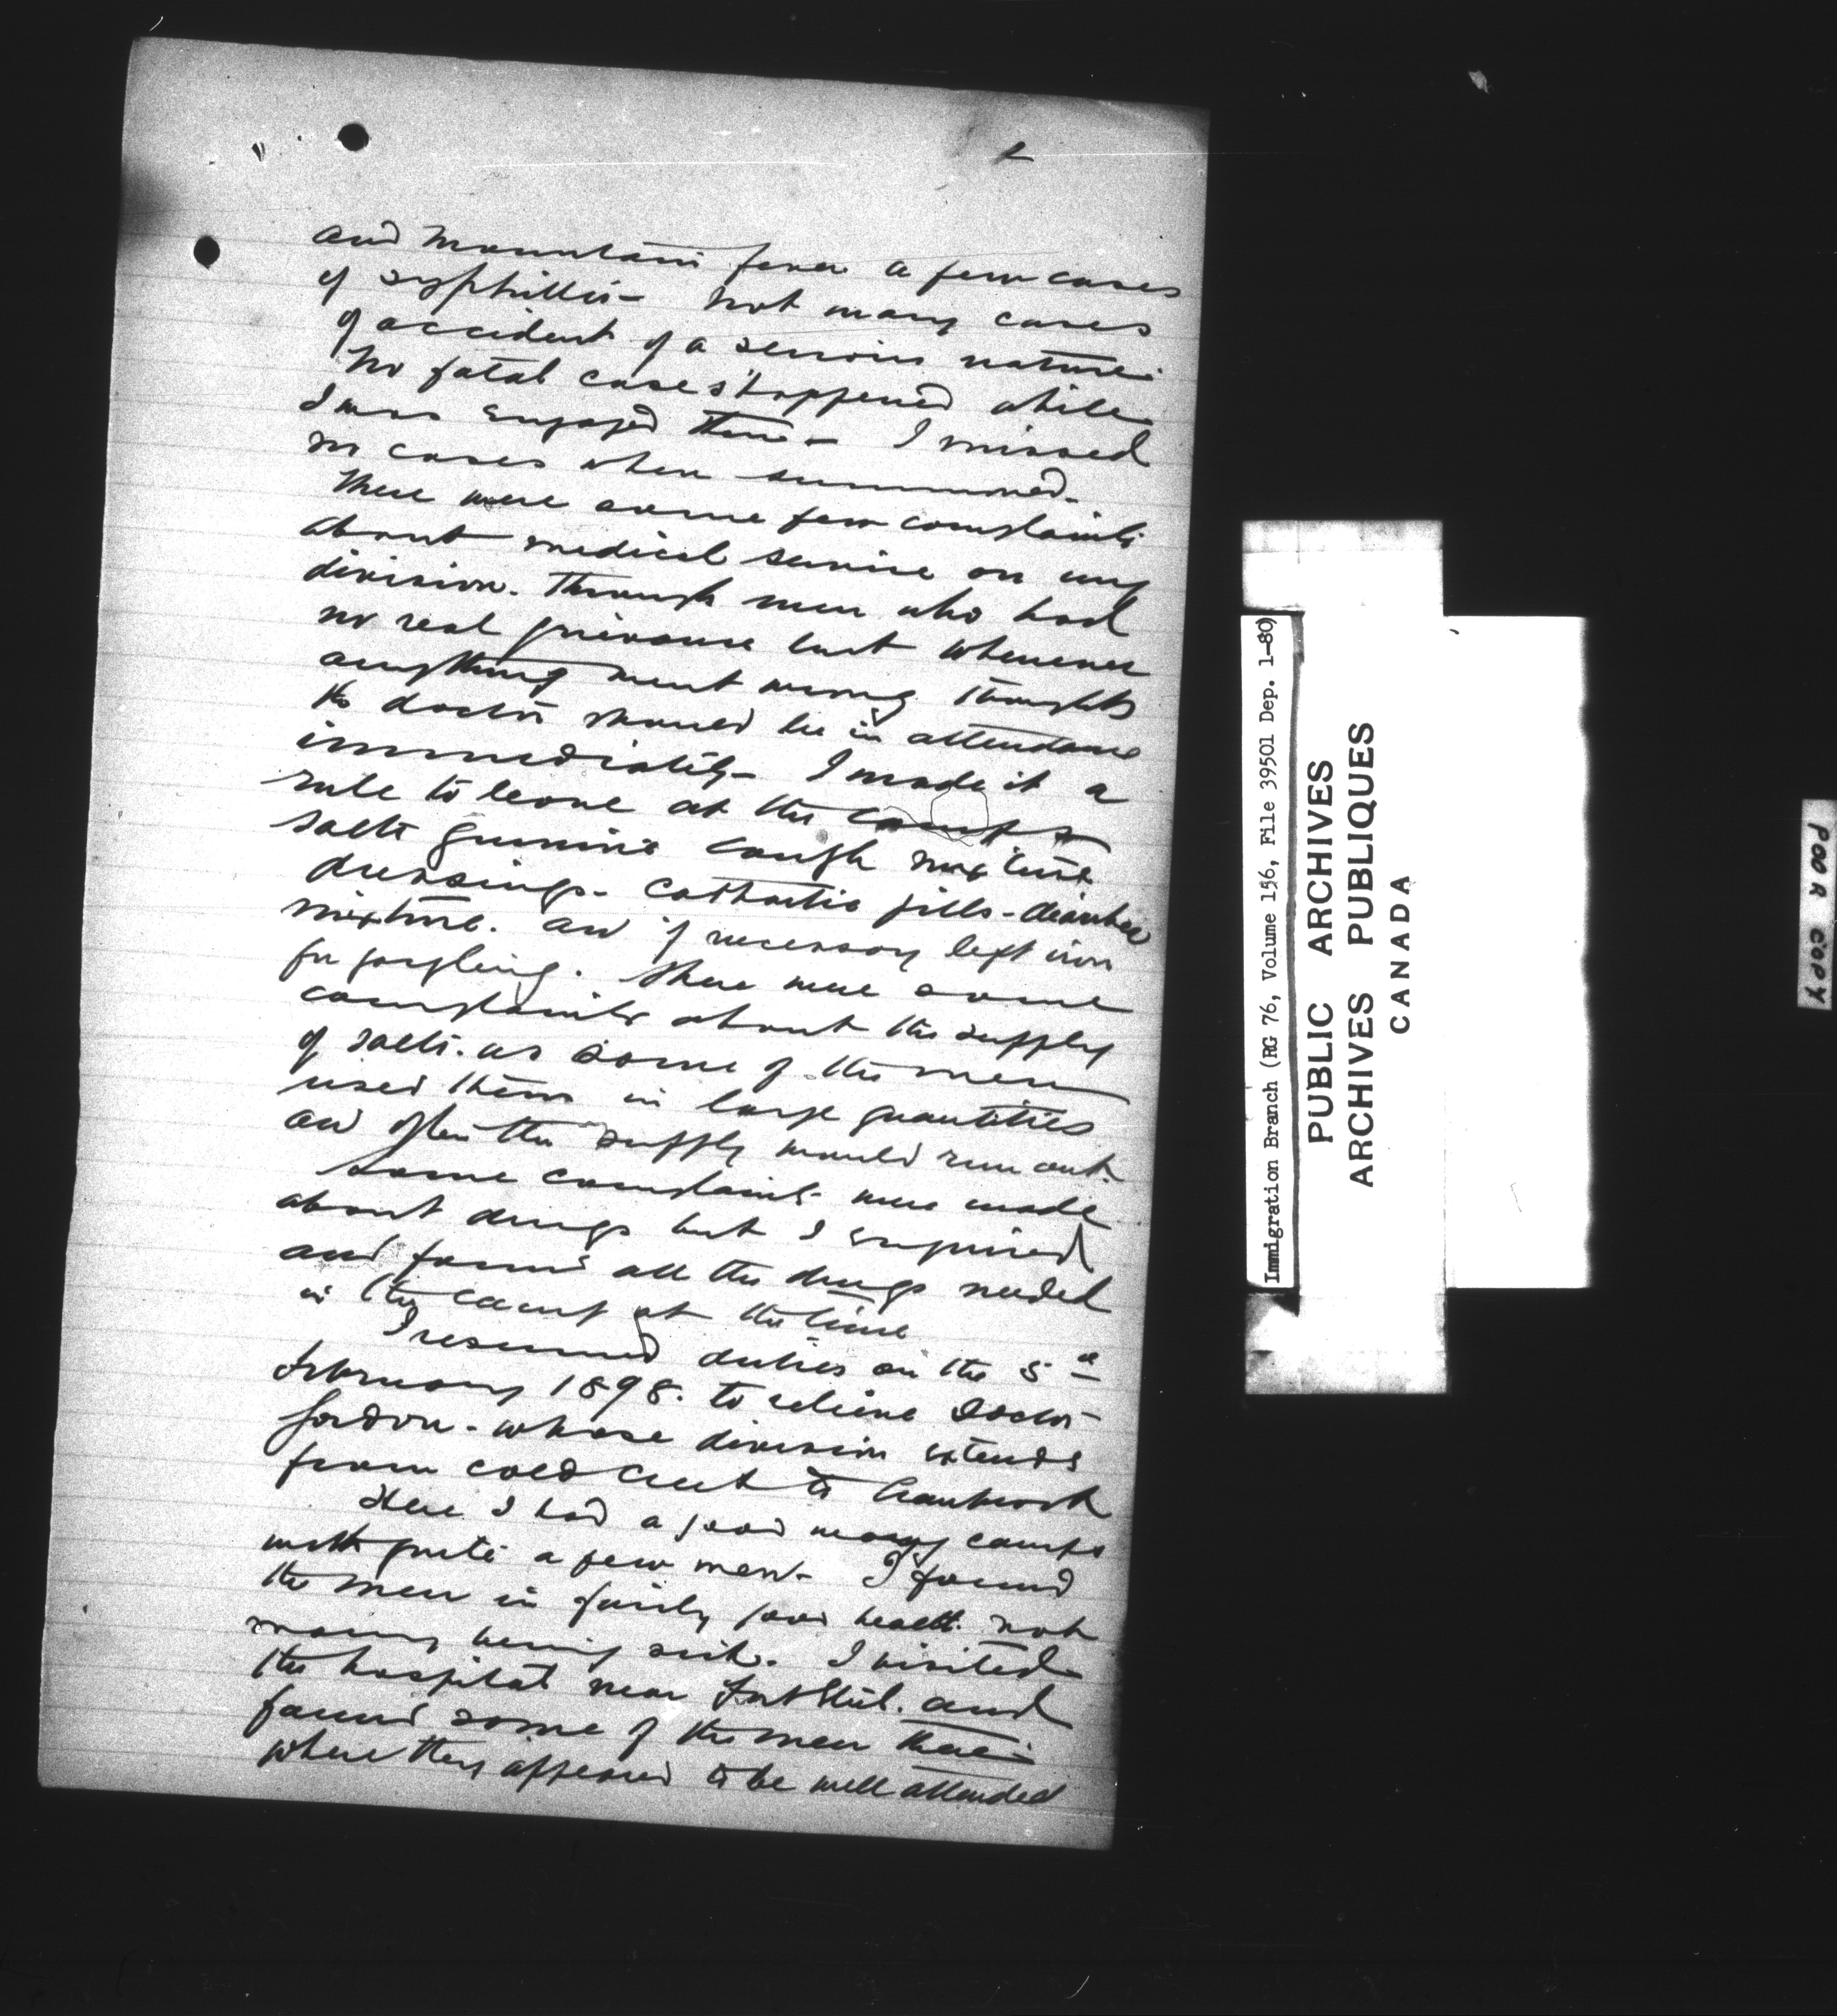 2
and Mountain fever a few cases
of syphillis - Not many cases
of accident of a serious nature.
No fatal cases happened while
I was engaged there - I missed
no cases when summoned.
There were some few complaints
about medical service on my
division. Through men who had
no real grievance but whenever
anything went wrong thought
the doctor should be in attendance
immediately - I made it a
rule to leave at the camps
salts quinine cough mixture
dressings - cathartic pills - diarrhea
mixture. and if necessary left iron
for gargling. There were some
complaints about the supply
of salts. as some of the men
used them in large quantities
and often the supply would run out.
Some complaints were made
about drugs but I enquired
and found all the drugs needed
in the camp at the time
I resumed duties on the 5th
February 1898. to relieve Doctor
Gordon - whose division extends
from Cold Creek to Cranbrook
Here I had a good many camps
with quite a few men - I found
the men in fairly good health not
many being sick. I visited
the hospital near Fort Steel. and
found some of the men there -
where they appeared to be well attended
Immigration Branch (RG 76, Volume 156, File 39501 Dep. 1-80)
PUBLIC ARCHIVES
ARCHIVES PUBLIQUES
CANADA
POOR COPY